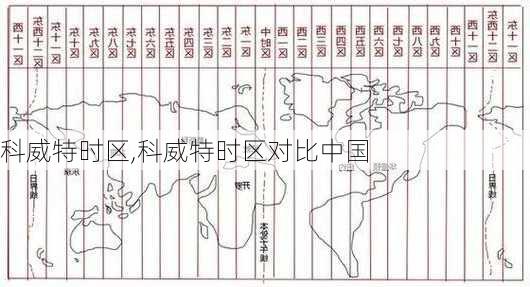 西十一区
东西十二区
东十一区
东十区
东九区
东八区
东七区
东六区
东五区
东四区
东三区
东二区
东一区
中时区
西一区
西二区
西三区
西四区
西五区
西六区
西七区
西八区
西九区
西十区
西十一区
东西十二区
东十一区
科威特时区,科威特时区对比中国
日界线
开罗
纽约
日界线
本初子午线